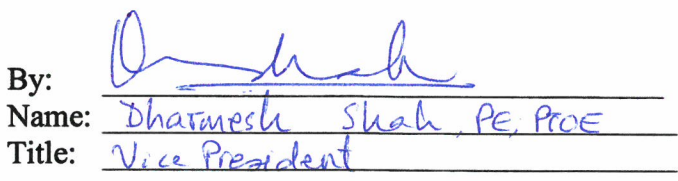 By:
Name: Dharmesh Shah, PE, PTOE
Title: Vice President